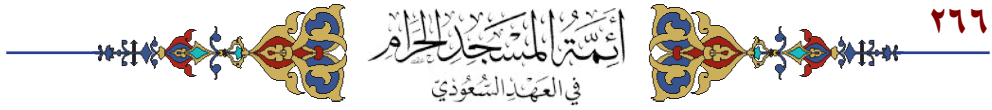 ٢٦٦
أَئِمَّةُ المَسْجِدِ الحَرَامِ
فِي العَهْدِ السُّعُودِيّ